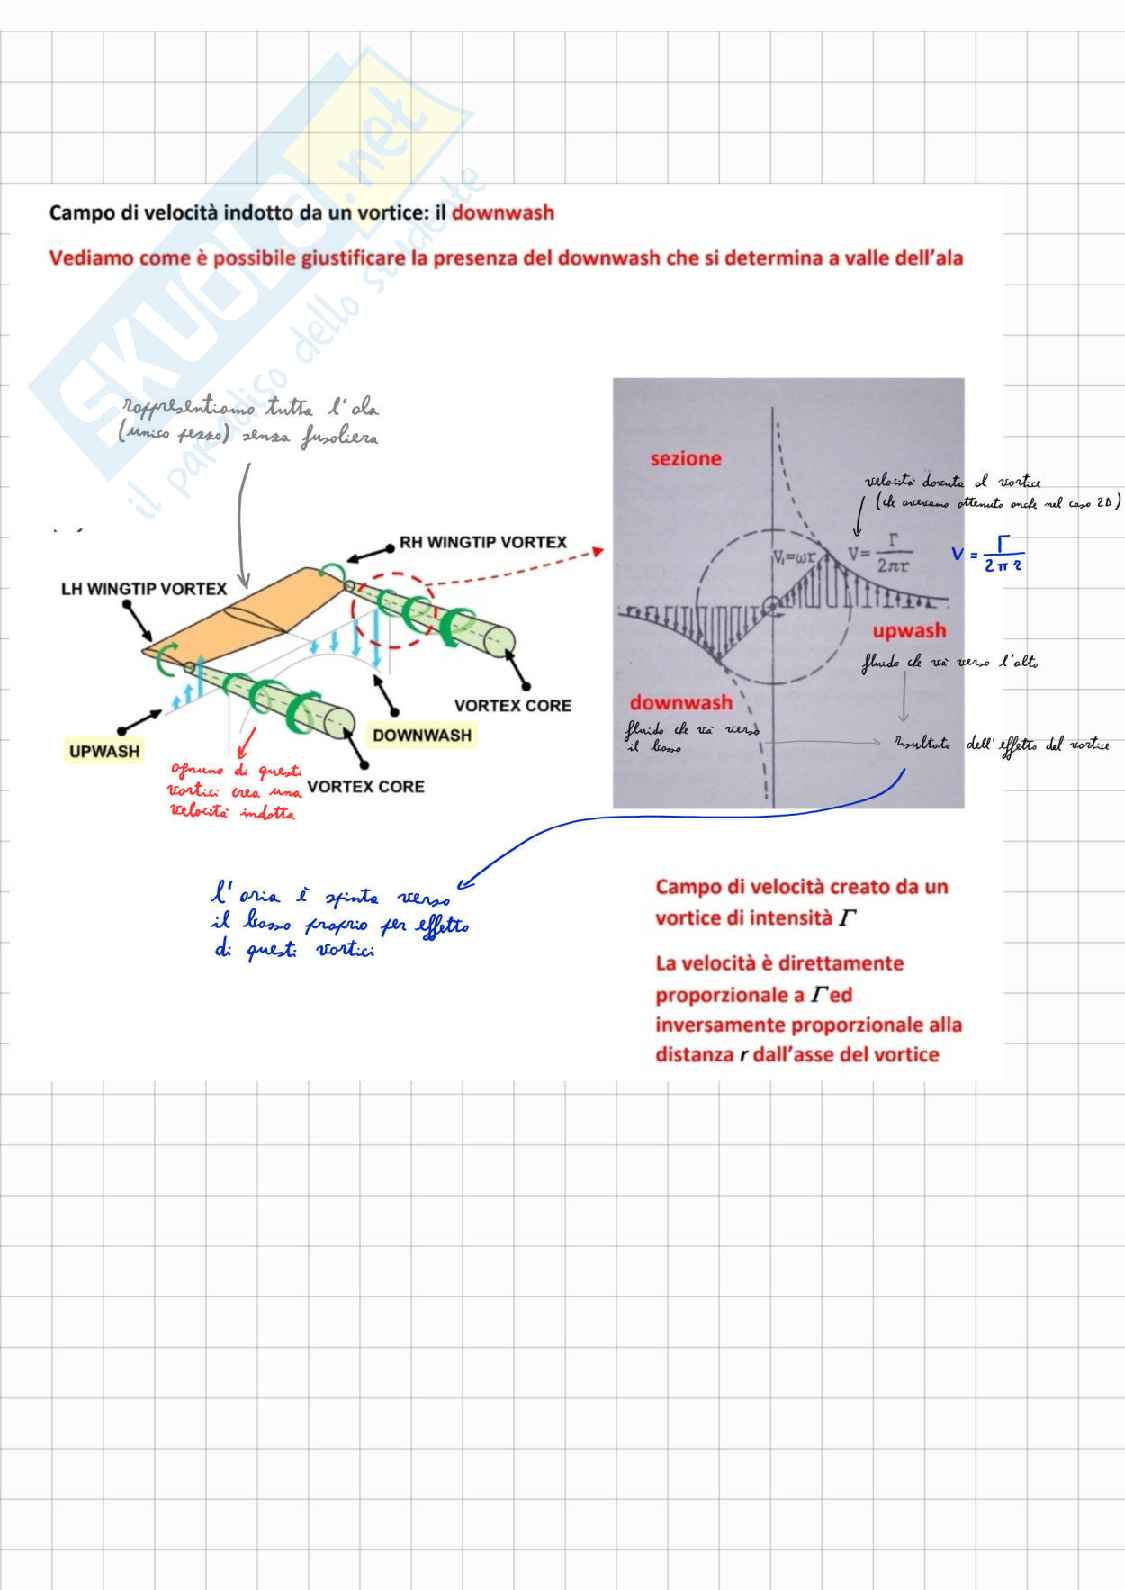 SKUOLA.net
il paradiso dello studente
Campo di velocità indotto da un vortice: il downwash
Vediamo come è possibile giustificare la presenza del downwash che si determina a valle dell'ala
rappresentiamo tutta l'ala
(unico pezzo) senza fusoliera
RH WINGTIP VORTEX
LH WINGTIP VORTEX
VORTEX CORE
DOWNWASH
UPWASH
VORTEX CORE
ognuno di questi
vortici crea una
velocità indotta
sezione
velocità dovuta al vortice
(che avevamo ottenuto anche nel caso 2D)
V₁=ωr
V= Γ/2πr
V = Γ/2πr
upwash
fluido che va verso l'alto
downwash
fluido che va verso
il basso
risultato dell'effetto del vortice
l'aria è spinta verso
il basso proprio per effetto
di questi vortici
Campo di velocità creato da un
vortice di intensità Γ
La velocità è direttamente
proporzionale a Γ ed
inversamente proporzionale alla
distanza r dall'asse del vortice